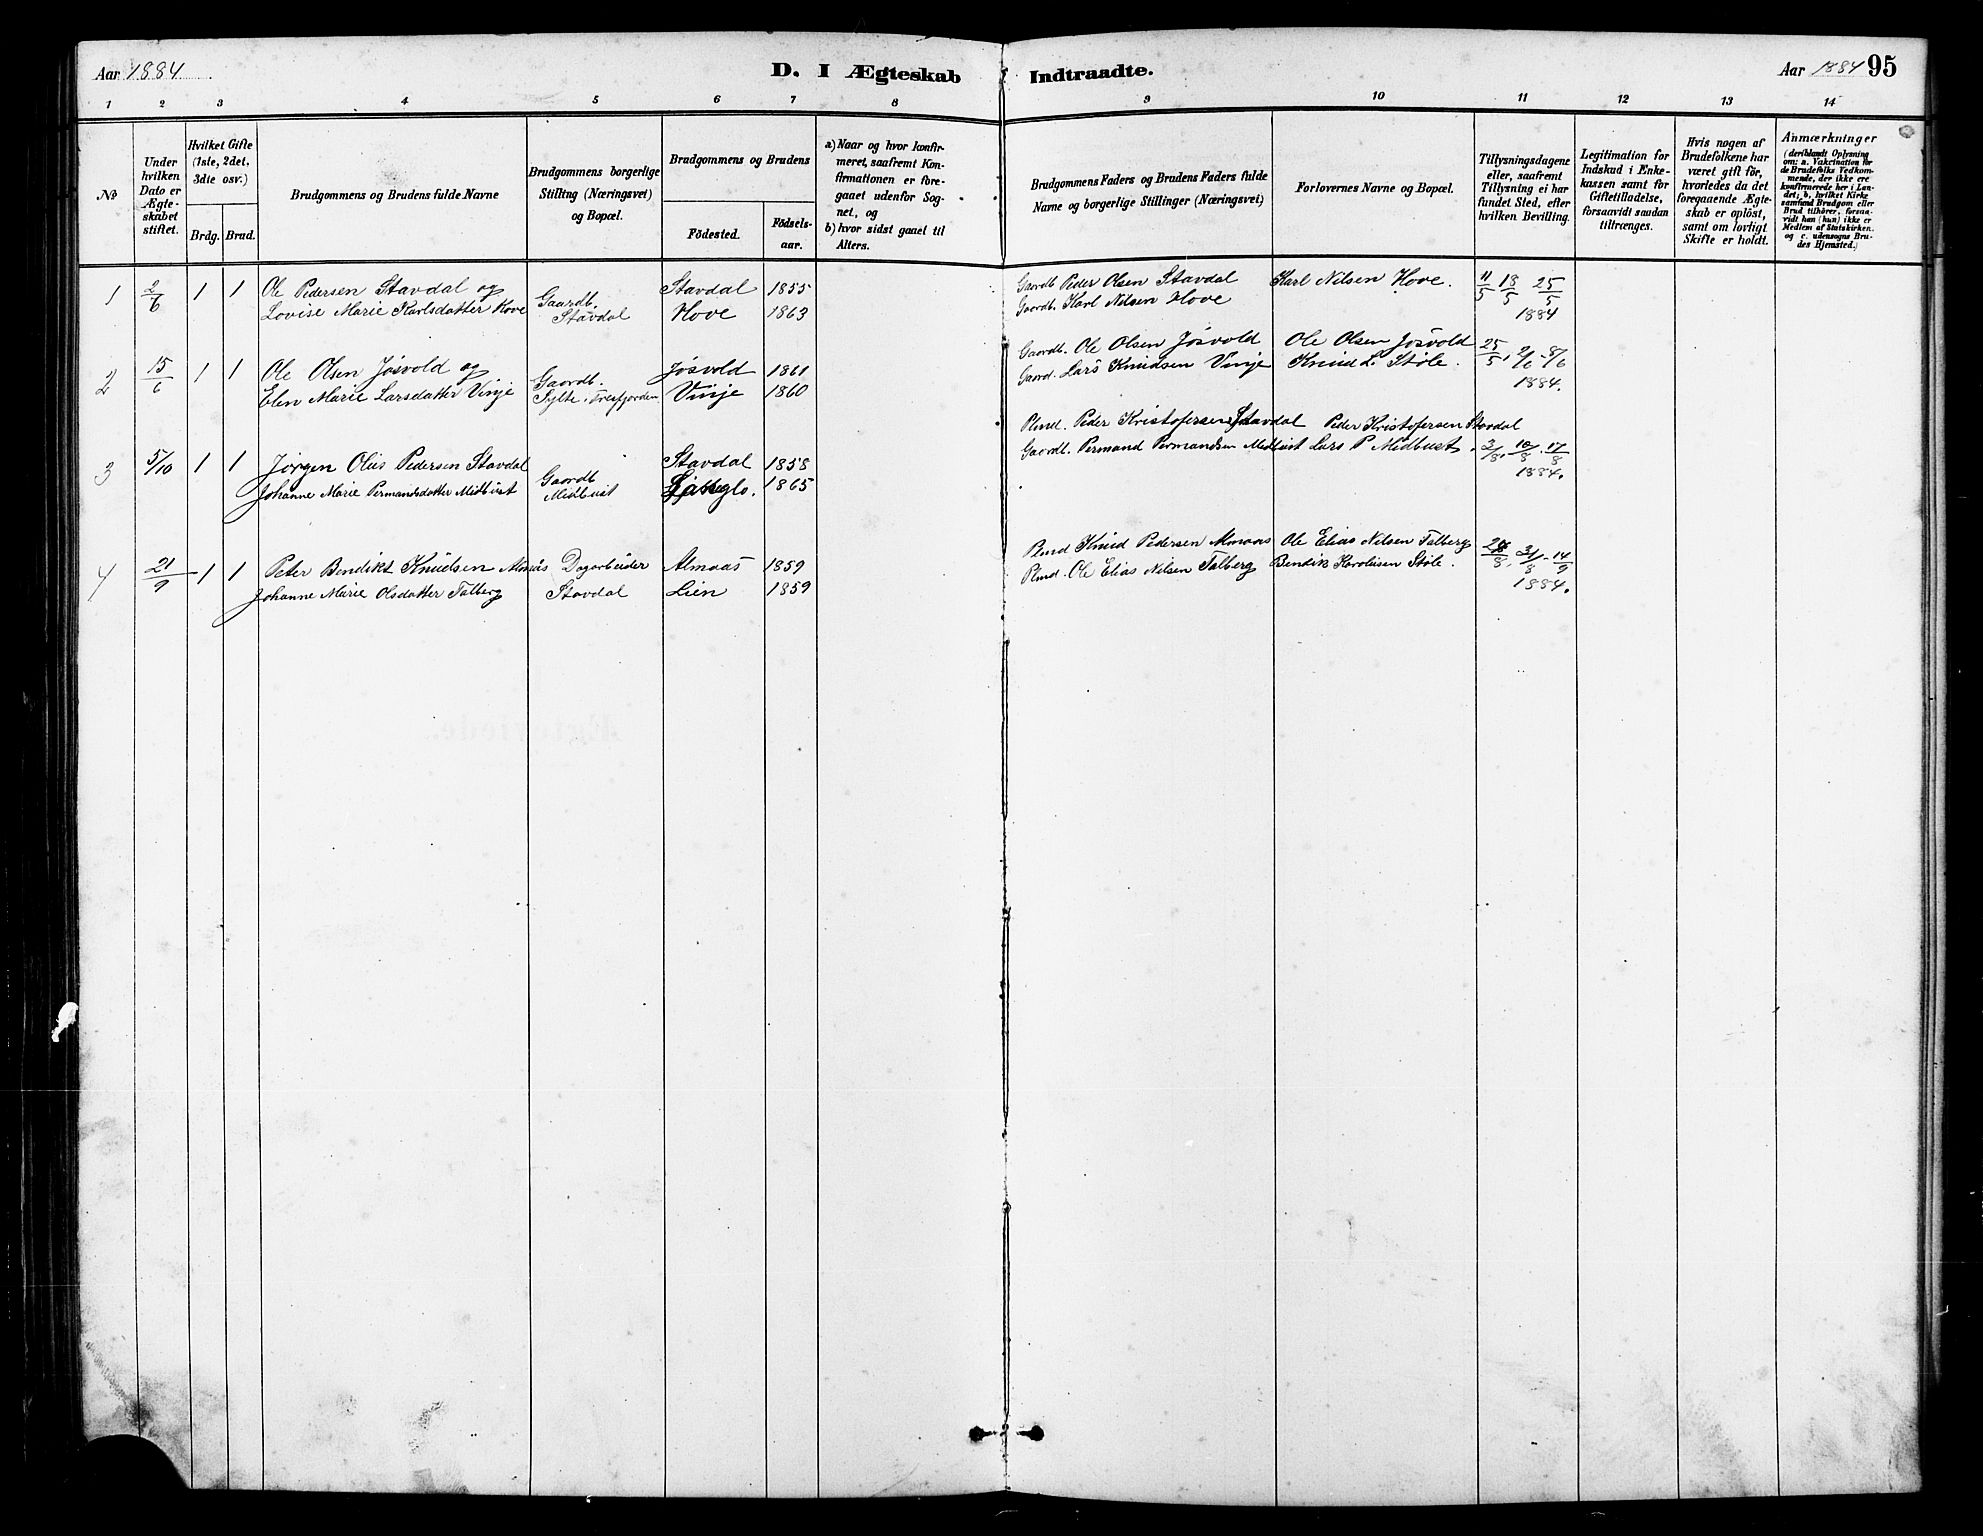 Aar 1884
D. I Ægteskab Indtraadte.
Aar 1884 95
1 2 3 4 5 6 7 8 9 10 11 12 13 14
No
Under hvilken Dato er Ægteskabet stiftet.
Hvilket Gifte (1ste, 2det, 3die osv.)
Brdg. Brud.
Brudgommens og Brudens fulde Navne
Brudgommens borgerlige Stilling (Næringsvei) og Bopæl.
Brudgommens og Brudens
Födested. Födselsaar.
a) Naar og hvor konfirmeret, saafremt Konfirmationen er foregaaet udenfor Sognet, og
b) hvor sidst gaaet til Alters.
Brudgommens Faders og Brudens Faders fulde Navne og borgerlige Stillinger (Næringsvei)
Forlovernes Navne og Bopæl.
Tillysningsdagene eller, saafremt Tillysning ei har fundet Sted, efter hvilken Bevilling.
Legitimation for Indskud i Enkekassen samt for Giftetilladelse, forsaavidt saadan tiltrænges.
Hvis nogen af Brudefolkene har været gift för, hvorledes da det foregaaende Ægteskab er oplöst, samt om lovligt Skifte er holdt.
Anmærkninger (deriblandt Oplysning om: a. Vakcination for de Brudefolks Vedkommende, der ikke ere konfirmerede her i Landet; b. hvilket Kirkesamfund Brudgom eller Brud tilhörer, forsaavidt han (hun) ikke er Medlem af Statskirken. og c. udensogns Brudes Hjemsted.)
1 2/6 1 1 Ole Pedersen Stavdal og Gaardb. Stavdal 1855 Gaardb Peder Olsen Stavdal Karl Nilsen Hove. 11/5 18/5 25/5
Lovise Marie Karlsdatter Hove Stavdal Hove 1863 Gaardb. Karl Nilsen Hove 1884
2 15/6 1 1 Ole Olsen Jøsvold og Gaardb. Jøsvold 1861 Gaardb. Ole Olsen Jøsvold Ole Olsen Jøsvold 25/5, 2/6 - 8/6
Elen Marie Larsdatter Vinje Sylte i Tresfjorden Vinje 1860 Gaard. Lars Knudsen Vinje Knud L. Støle. 1884.
3 5/10 1 1 Jørgen Olius Pedersen Stavdal Gaardb Stavdal 1858 Plmd. Peder Kristofersen Stavdal Peder Kristofersen Stavdal
Johanne Marie Permandsdatter Midbust Midbust 1865 Gaardb. Permand Permandsen Midbust Lars P Midbust. 3/8, 10/8. 17/8 1884.
4 21/9 1 1 Peter Bendikt Knudsen Almaas Dagarbeider Almaas 1859 Plmd Knud Pedersen Almaas Ole Elias Nilsen Talberg 31/8 - 14/9
Johanne Marie Olsdatter Talberg Stavdal Lien 1859 Plmd. Ole Elias Nilsen Talberg Bendik Karolusen Støle. 1884.